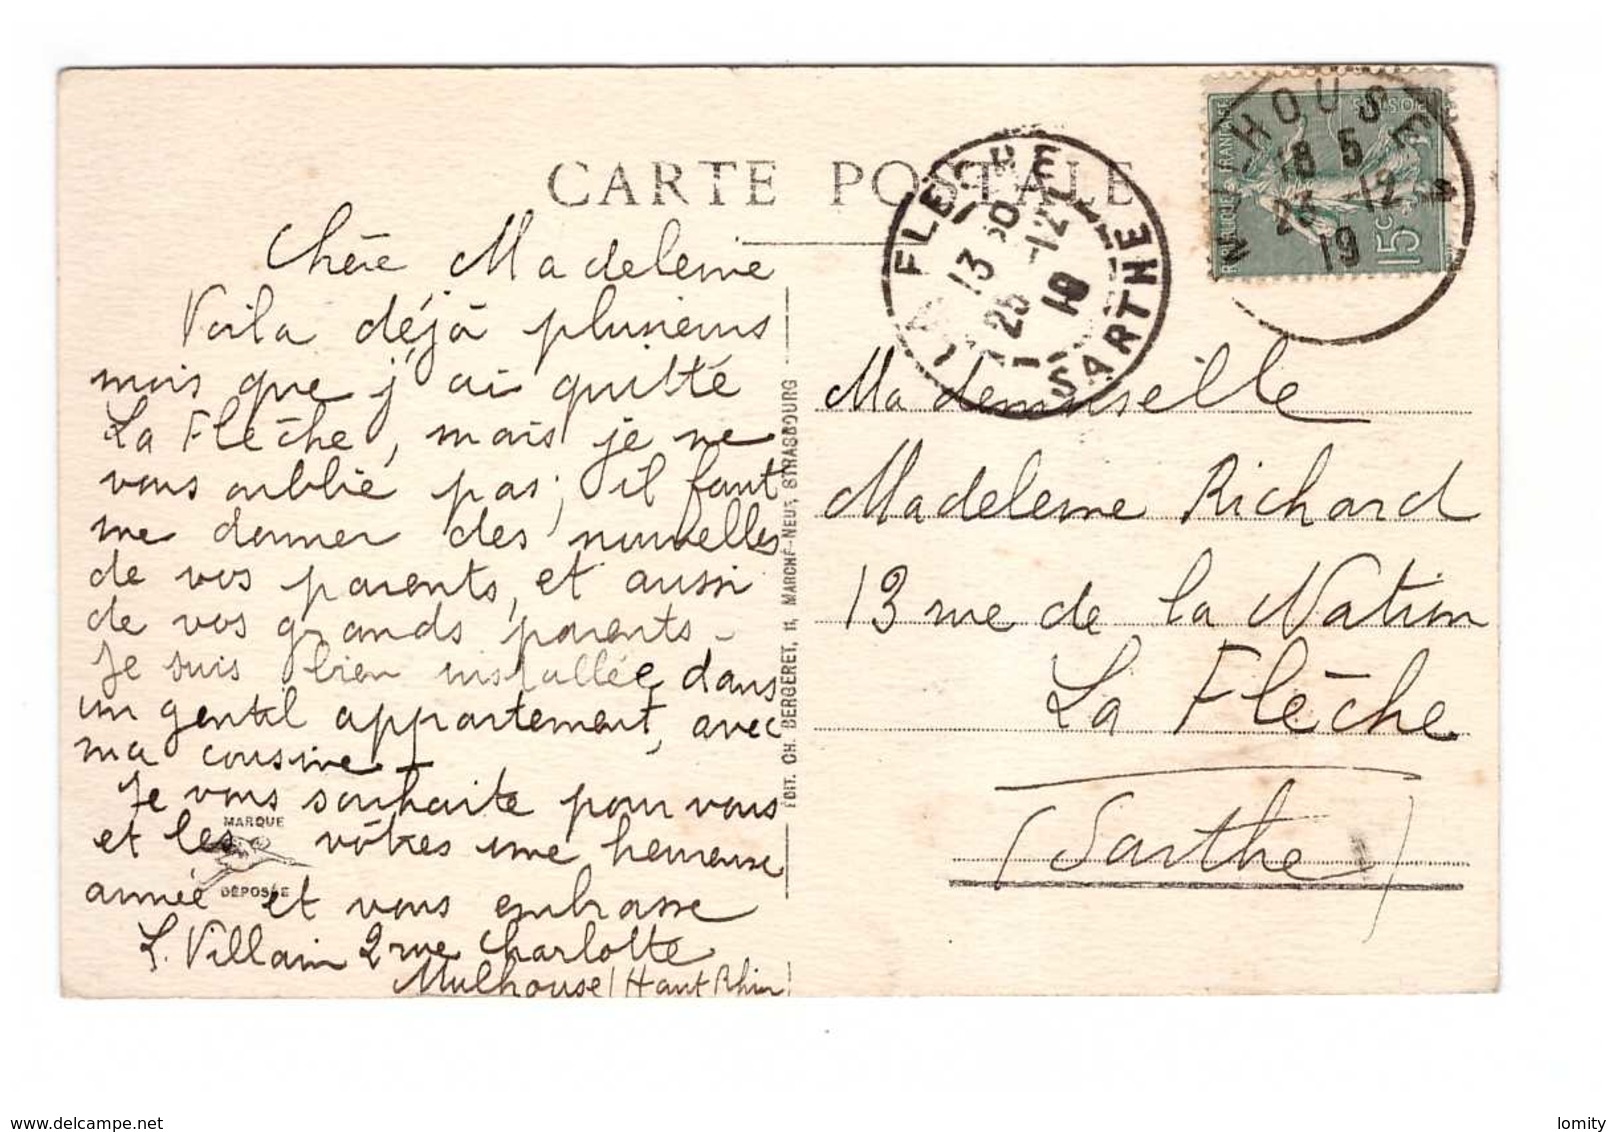 CARTE POSTALE
Chère Madeleine
Voila déjà plusieurs
mois que j'ai quitté
La Flèche, mais je ne
vous oublie pas; il faut
me donner des nouvelles
de vos parents, et aussi
de vos grands parents -
Je suis bien installée dans
un gentil appartement, avec
ma cousine -
Je vous souhaite pour vous
et les vôtres une heureuse
année et vous embrasse
L. Villain 2 rue Charlotte
Mulhouse (Haut Rhin)
MARQUE
DÉPOSÉE
EDIT. CH. BERGERET, 11, MARCHÉ-NEUF, STRASBOURG
LA FLECHE
SARTHE
13 30
25 -12
19
HOUSE
18 5
23 -12
19
REPUBLIQUE FRANÇAISE
15c
Mademoiselle
Madeleine Richard
13 rue de la Nation
La Flèche
(Sarthe)
www.delcampe.net
lomity